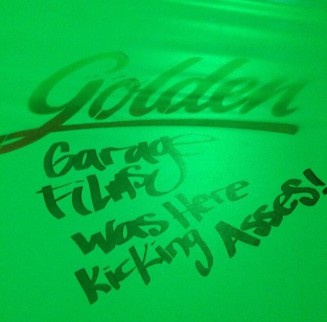 Golden
Garage
Films
Was Here
Kicking Asses!